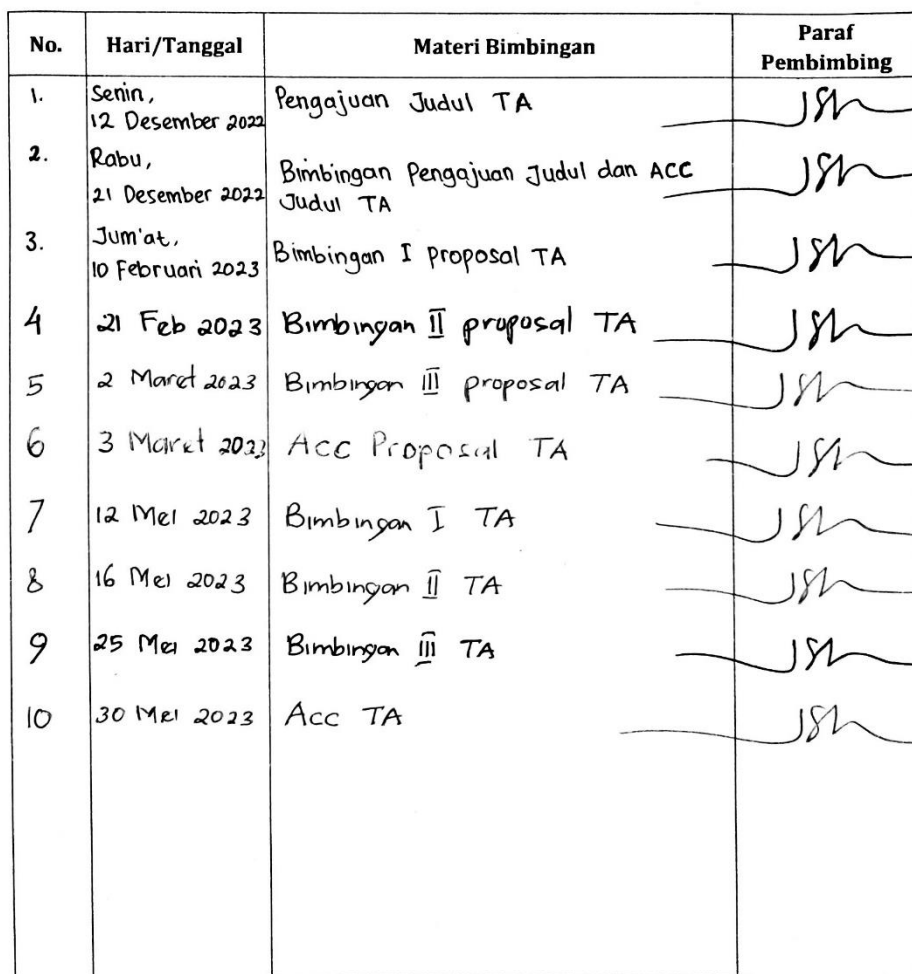 No. Hari/Tanggal Materi Bimbingan Paraf Pembimbing
1. Senin, 12 Desember 2022 Pengajuan Judul TA
2. Rabu, 21 Desember 2022 Bimbingan Pengajuan Judul dan ACC Judul TA
3. Jum'at, 10 Februari 2023 Bimbingan I proposal TA
4 21 Feb 2023 Bimbingan II proposal TA
5 2 Maret 2023 Bimbingan III proposal TA
6 3 Maret 2023 Acc Proposal TA
7 12 Mei 2023 Bimbingan I TA
8 16 Mei 2023 Bimbingan II TA
9 25 Mei 2023 Bimbingan III TA
10 30 Mei 2023 Acc TA